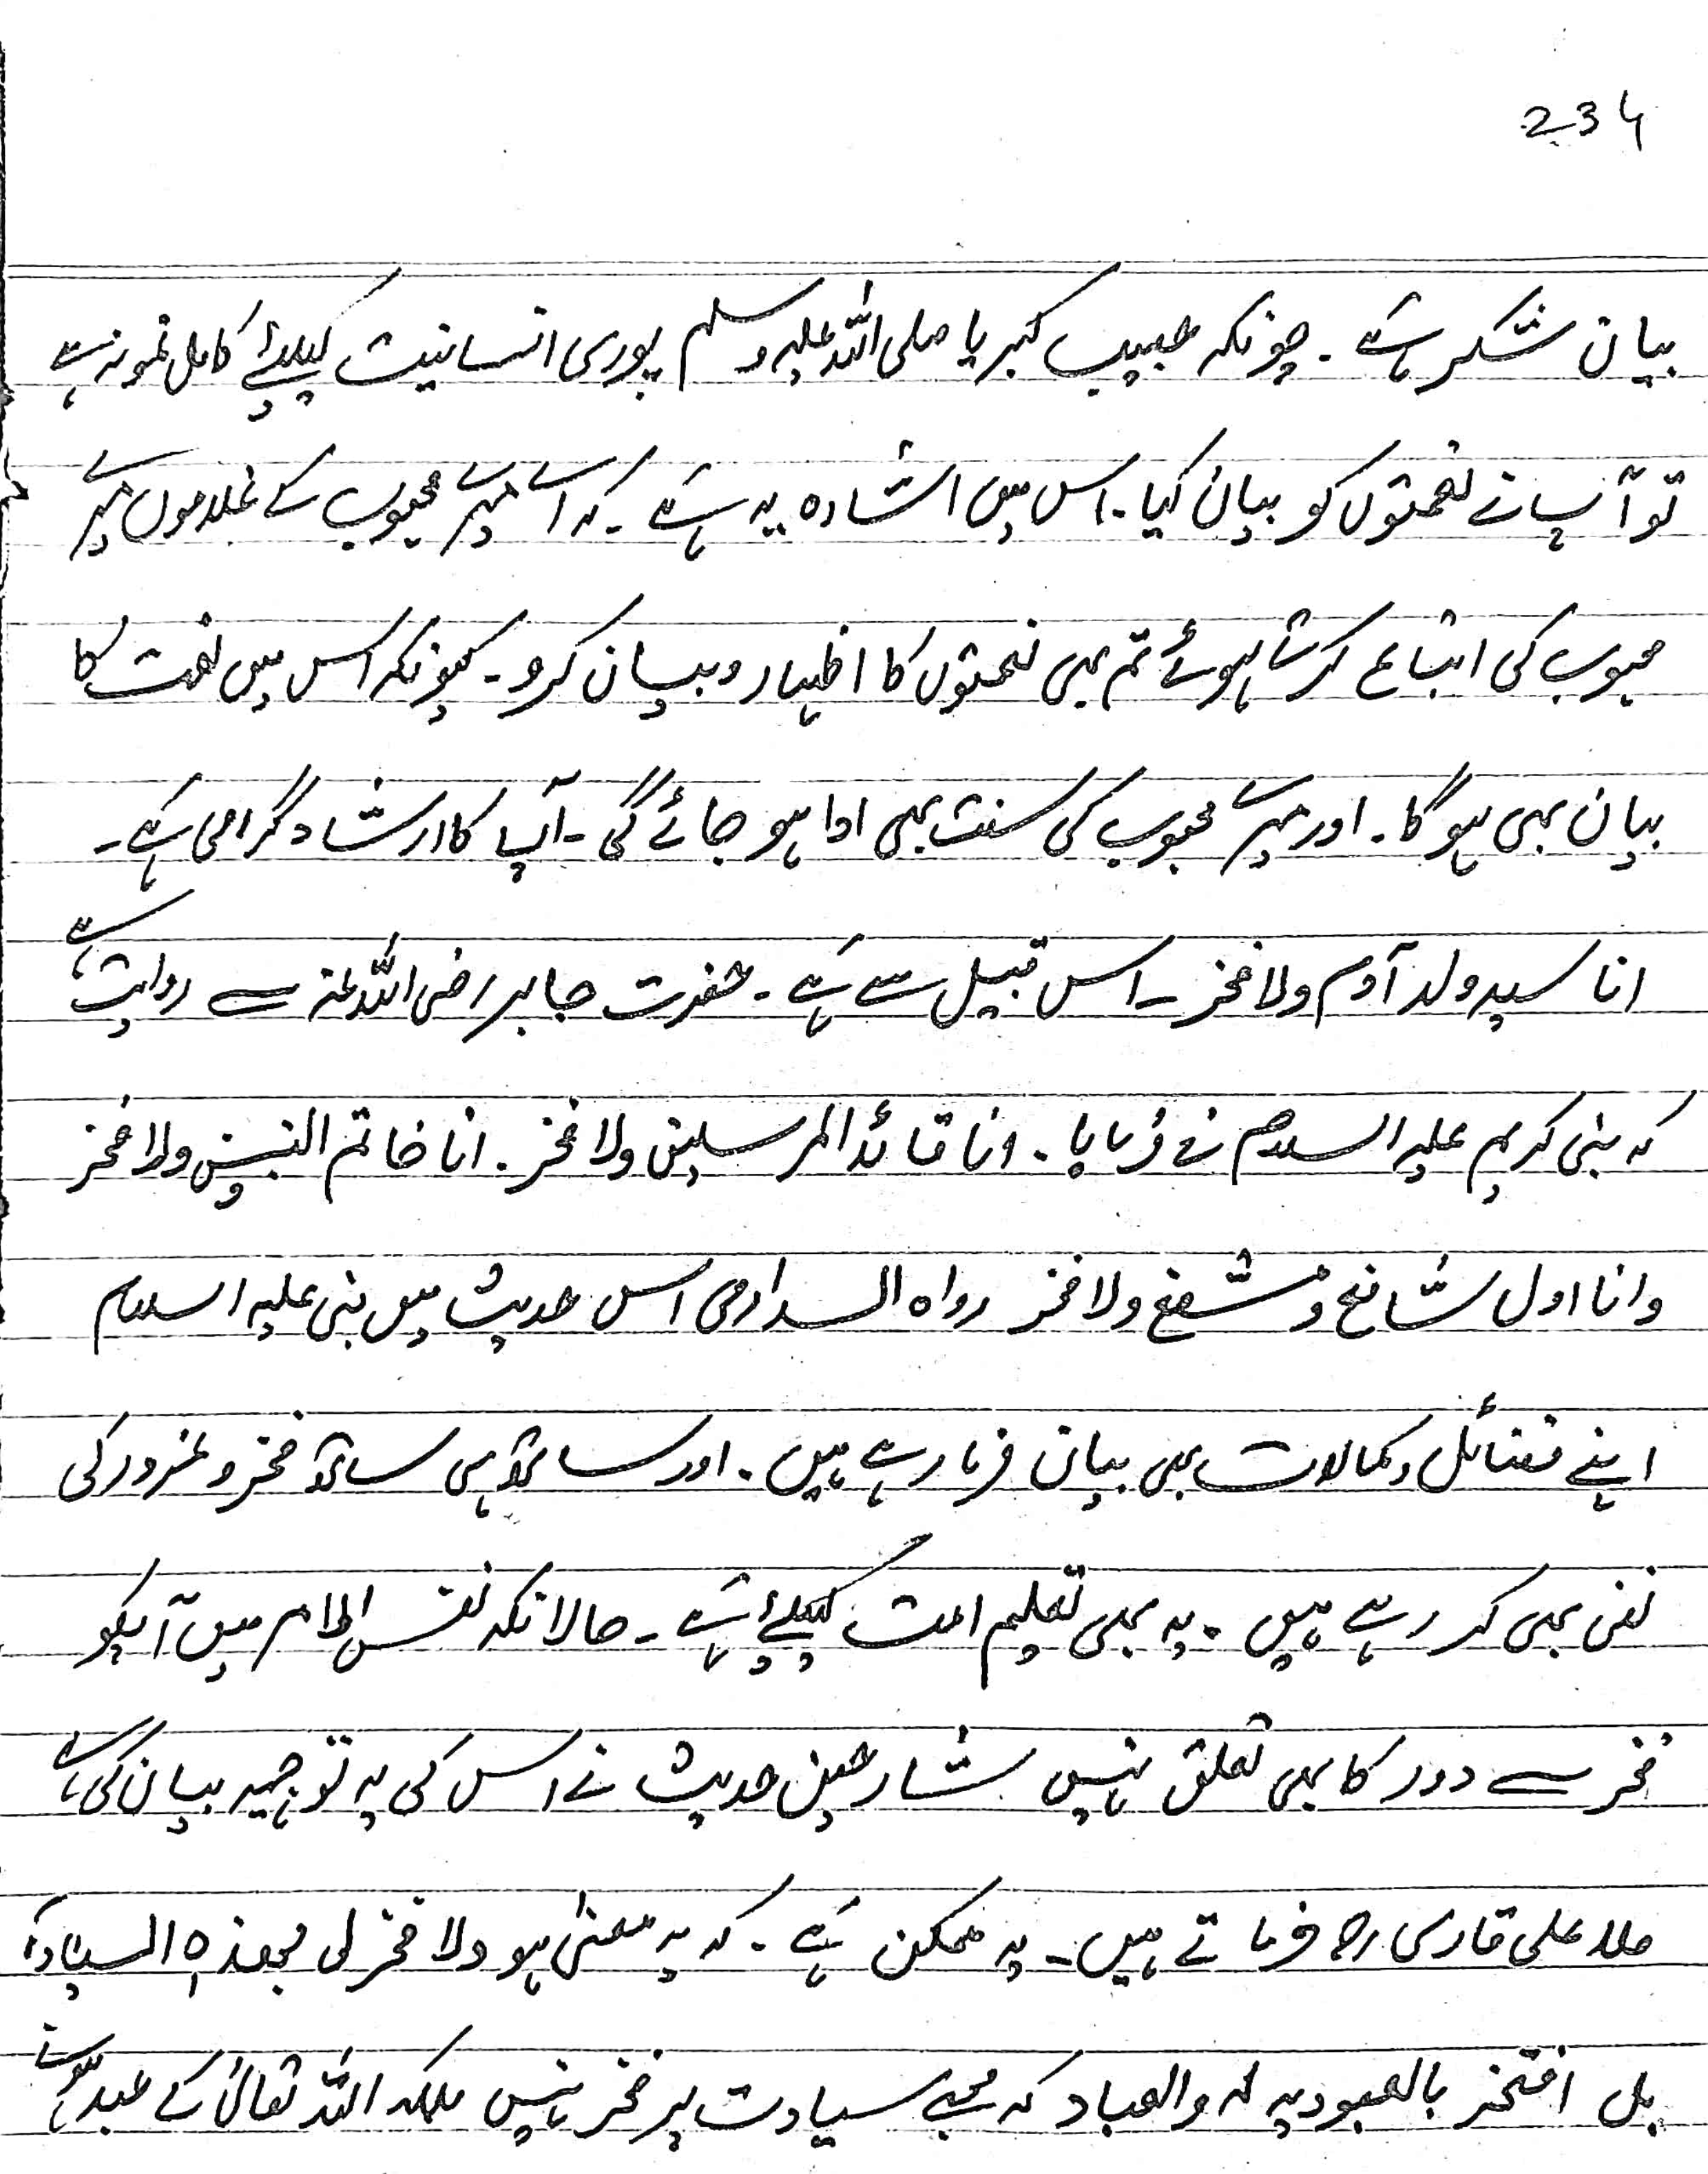 234
بیان شکر ہے ۔ چونکہ حبیب کبریا صلی اللہ علیہ وسلم پوری انسانیت کیلئے کامل نمونہ ہے
تو آپ نے نعمتوں کو بیان کیا ۔ اس میں اشارہ یہ ہے ۔ کہ اے میرے محبوب کے غلاموں میرے
محبوب کی اتباع کرتے ہوئے تم بھی نعمتوں کا اظہار و بیان کرو ۔ کیونکہ اس میں نعمت کا
بیان بھی ہوگا ۔ اور میرے محبوب کی سنت بھی ادا ہو جائے گی ۔ آپ کا ارشاد گرامی ہے ۔
انا سید ولد آدم ولا فخر ۔ اس قبیل سے ہے ۔ حضرت جابر رضی اللہ عنہ سے روایت ہے
کہ نبی کریم علیہ السلام نے فرمایا ۔ انا قائد المرسلین ولا فخر ۔ انا خاتم النبین ولا فخر
وانا اول شافع و مشفع ولا فخر رواہ الدارمی اس حدیث میں نبی علیہ السلام
اپنے فضائل و کمالات بھی بیان فرما رہے ہیں ۔ اور ساتھ ہی ساتھ فخر و غرور کی
نفی بھی کر رہے ہیں ۔ یہ بھی تعلیم امت کیلئے ہے ۔ حالانکہ نفس الامر میں آپکو
فخر سے دور کا بھی تعلق نہیں شارحین حدیث نے اس کی یہ توجیہ بیان کی ہے
ملا علی قاری رح فرماتے ہیں ۔ یہ ممکن ہے ۔ کہ یہ معنی ہو ولا فخر لی بھذہ السیادۃ
بل افتخر بالعبودیہ لہ والعباد کہ مجھے سیادت پر فخر نہیں بلکہ اللہ تعالیٰ کے عبد ہونے